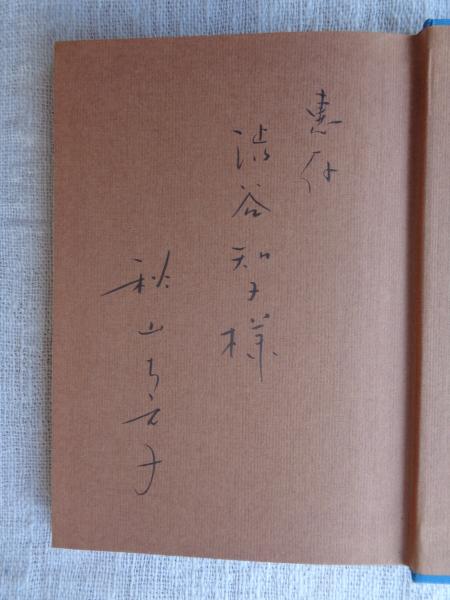 恵存
渋谷知子様
秋山ちえ子